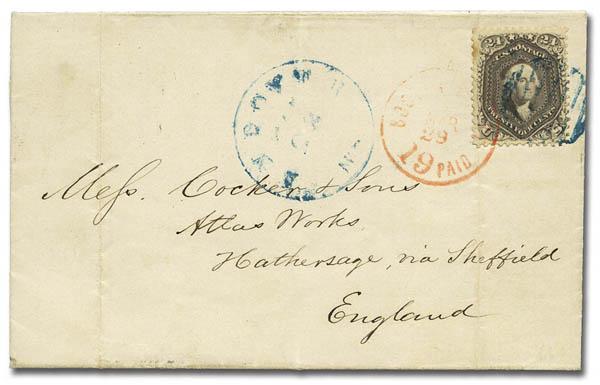 24 24
U.S. POSTAGE
TWENTY FOUR CENTS
ANDOVER
29
19
PAID
Mess. Cocker & Sons
Atlas Works.
Hathersage, via Sheffield
England